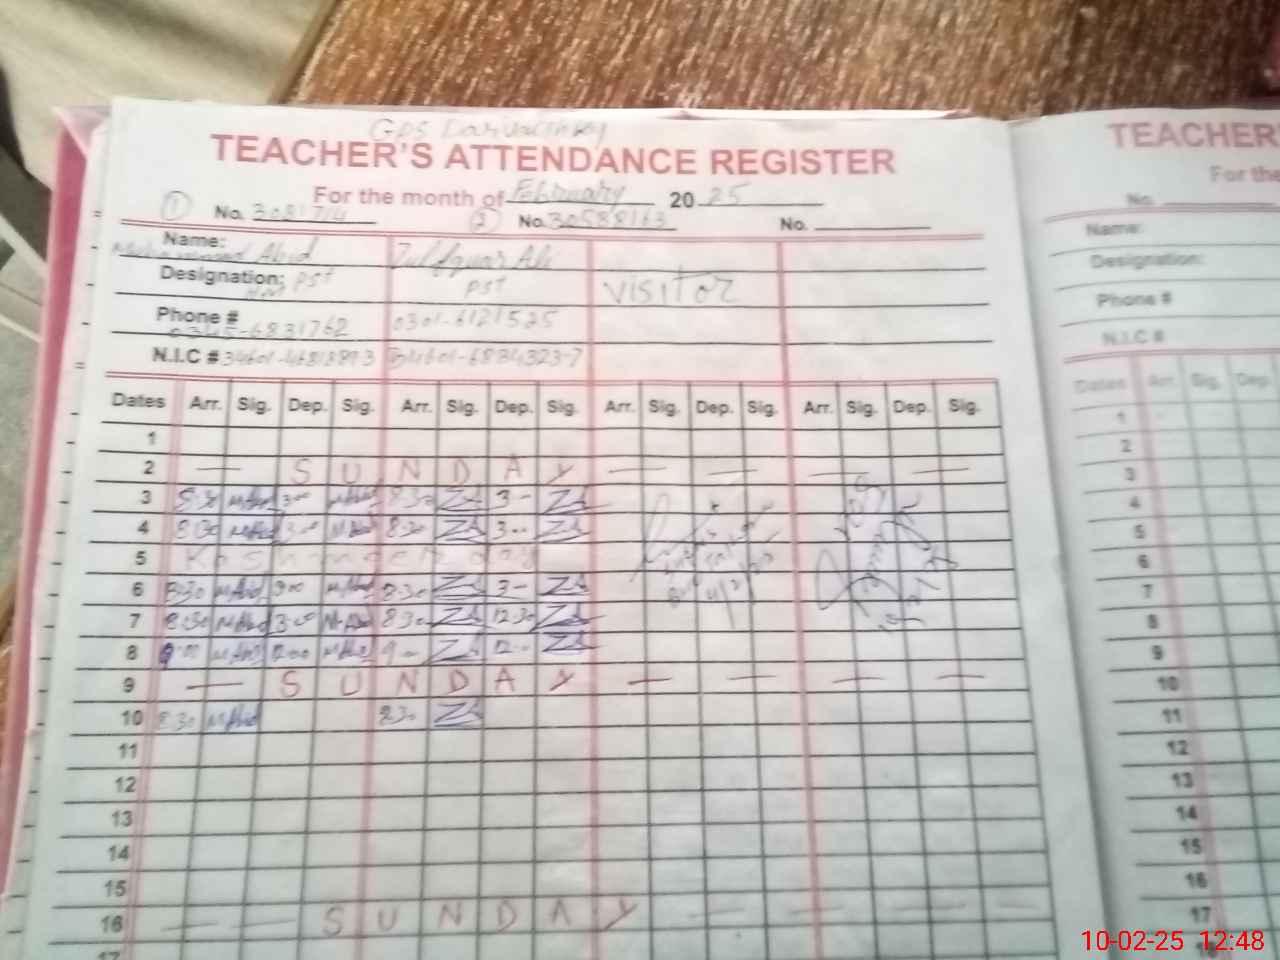 GPS
TEACHER'S ATTENDANCE REGISTER
For the month of February 20 25
① No. ② No. 30588163 No.
Name: Muhammad Abid Zulfqar Ali
Designation: PST HM PST VISITOR
Phone # 0345-6831762 0301-6121525
N.I.C # 34601-6834323-7
Dates Arr. Sig. Dep. Sig. Arr. Sig. Dep. Sig. Arr. Sig. Dep. Sig. Arr. Sig. Dep. Sig.
1
2 — S U N D A Y — — — —
3 8:30 M.Abid 3:00 M.Abid 8:30 ZA 3— ZA
4 8:30 M.Abid 3:00 M.Abid 8:30 ZA 3— ZA
5 Kashmeer day
6 8:30 M.Abid 3:00 M.Abid 8:30 ZA 3— ZA
7 8:30 M.Abid 3:00 M.Abid 8:30 ZA 12:30 ZA
8 9:00 M.Abid 12:00 M.Abid 9— ZA 12— ZA
9 — S U N D A Y — — — —
10 8:30 M.Abid 8:30 ZA
11
12
13
14
15
16 — — S U N D A Y — — — —
17
TEACHER
For the
No.
Name:
Designation:
Phone #
N.I.C #
Dates Arr. Sig. Dep.
1
2
3
4
5
6
7
8
9
10
11
12
13
14
15
16
17
18
10-02-25 12:48